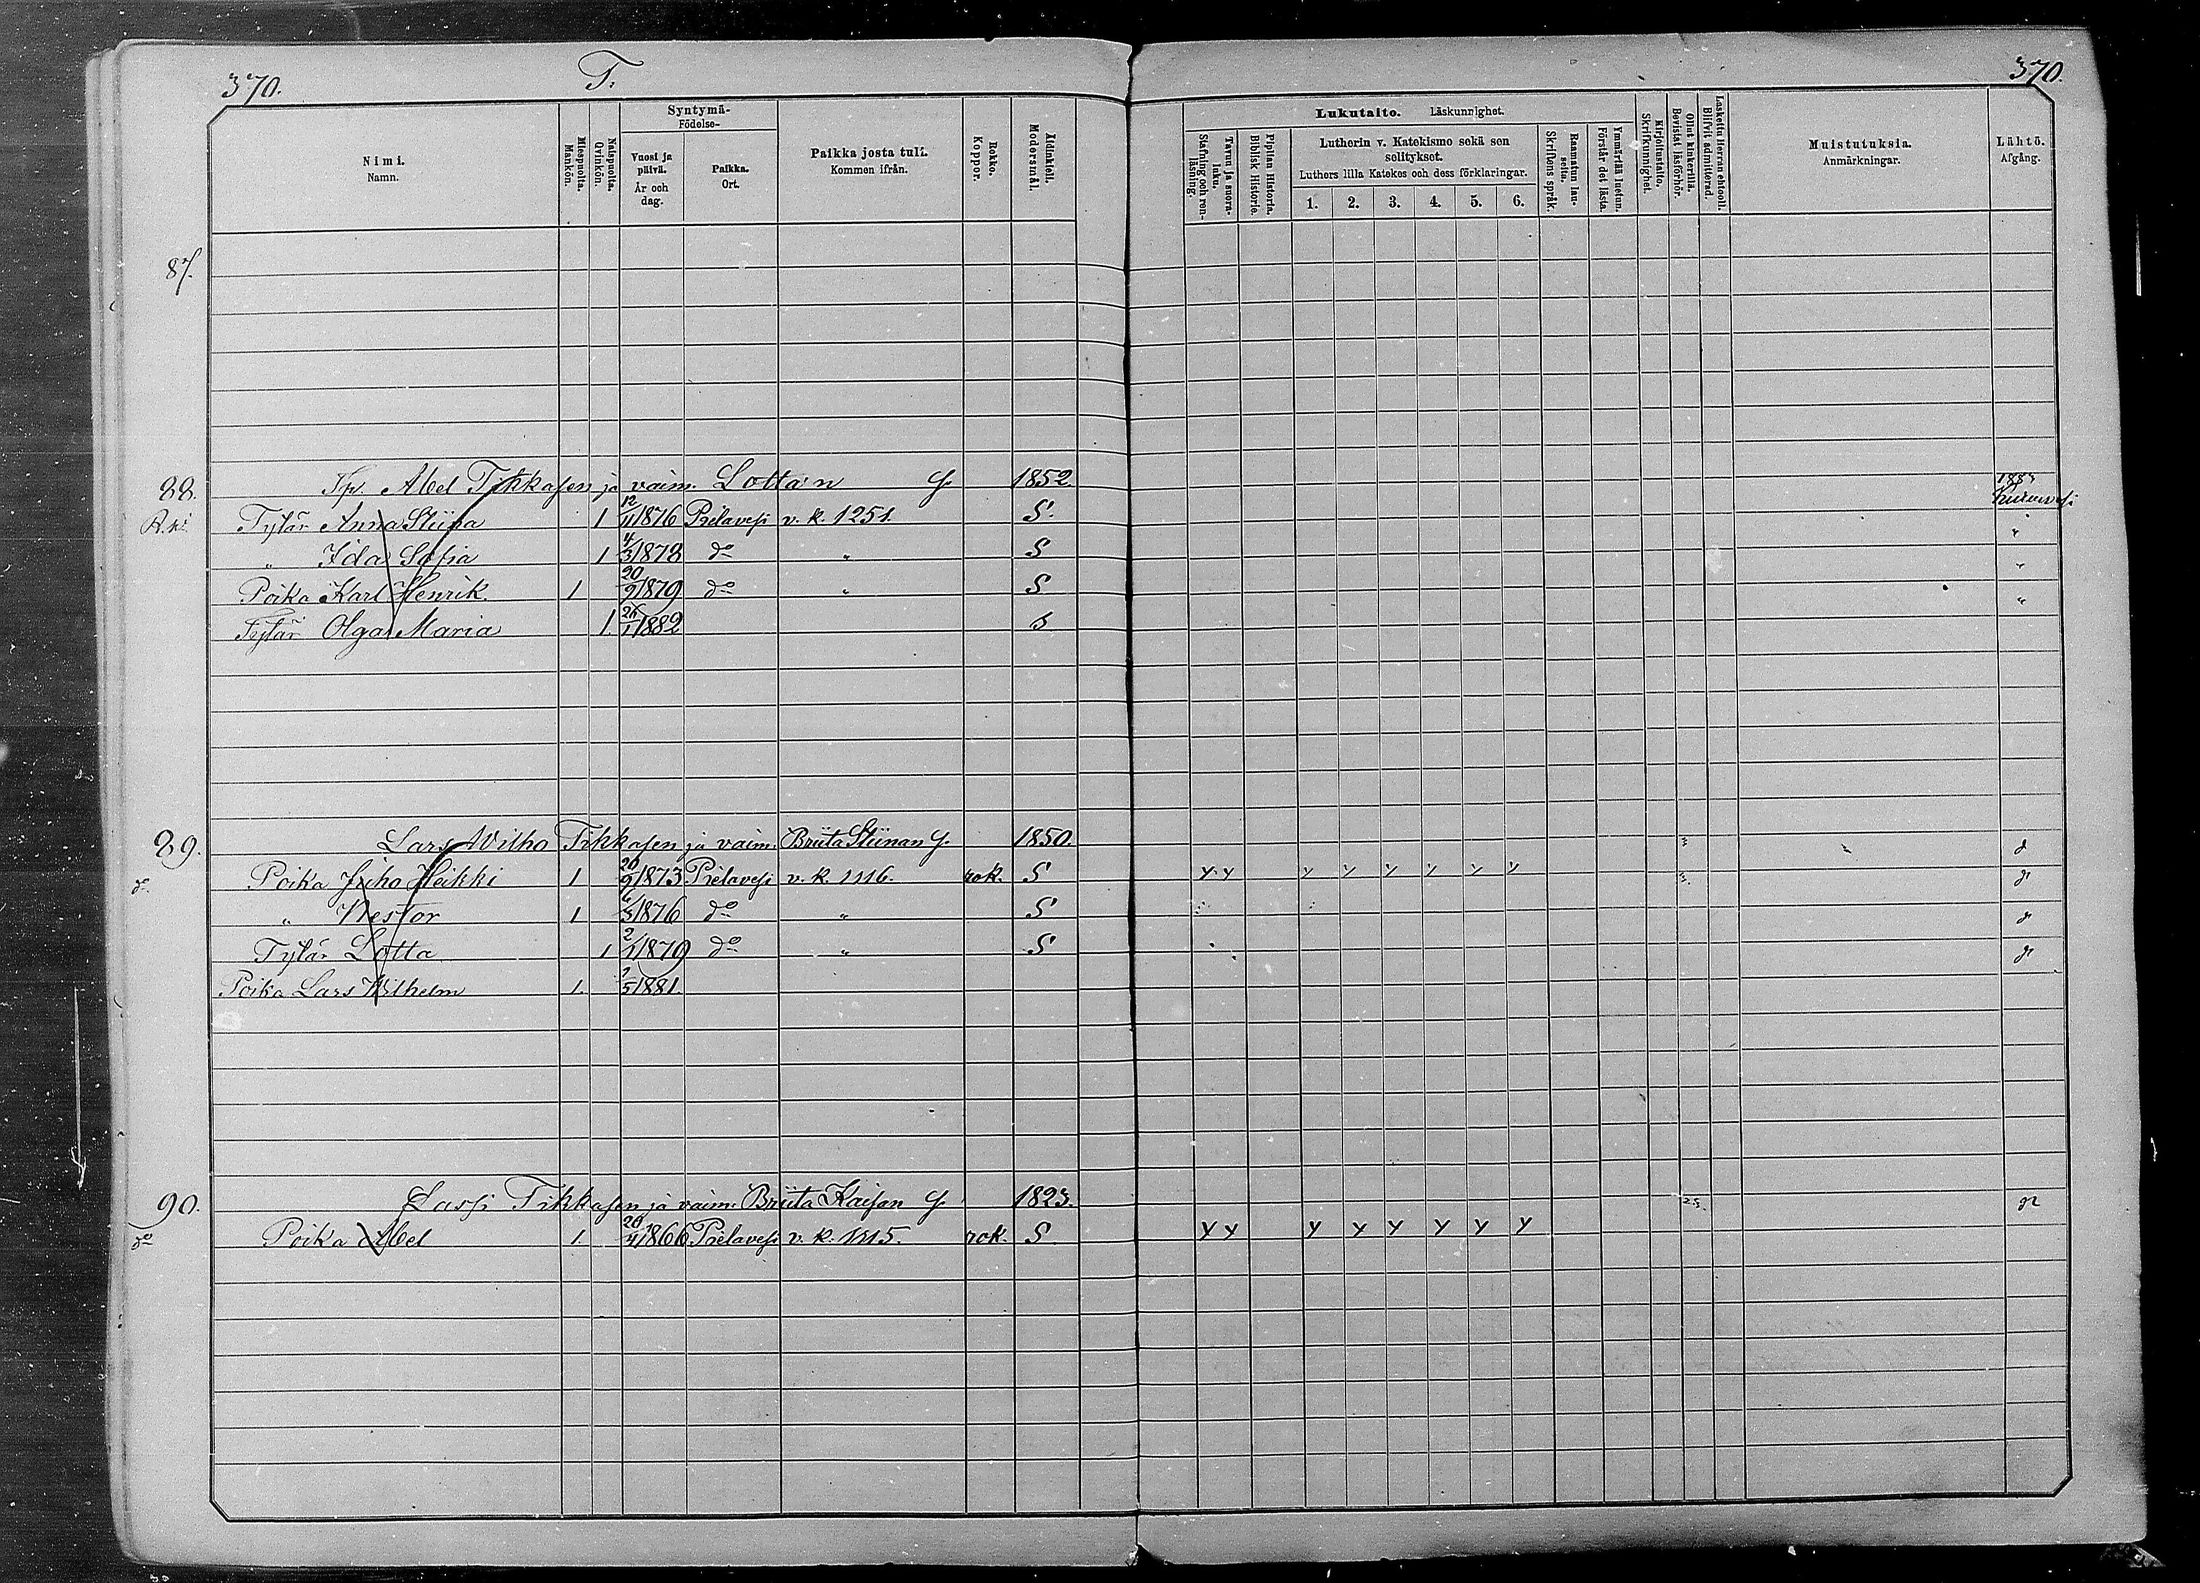 370. T. 370.
Nimi. Namn.
Miespuolta. Mankön.
Naispuolta. Qvinkön.
Syntymä- Födelse-
Vuosi ja päivä. År och dag.
Paikka. Ort.
Paikka josta tuli. Kommen ifrån.
Rokko. Koppor.
Äidinkieli. Modersmål.
Lukutaito. Läskunnighet.
Tavuu ja suora-luku. Stafning och ren-läsning.
Piplian Historia. Biblisk Historie.
Lutherin v. Katekismo sekä sen selitykset.
Luthers lilla Katekes och dess förklaringar.
1. 2. 3. 4. 5. 6.
Raamatun lau-seita. Skriftens språk.
Ymmärtää luetun. Förstår det lästa.
Kirjoitustaito. Skrifkunnighet.
Ollut kinkerillä. Bevistat läsförhör.
Laskettu Herran ehtooll. Blifvit admitterad.
Muistutuksia. Anmärkningar.
Lähtö. Afgång.
87.
88. Abel Tikkasen ja vaim. Lotta'n 1852 1883
Tytär Anna Stiina 1 12/11 1876 Pielavesi v. k. 1251. S.
" Ida Sofia 1 4/3 1878 do " S "
Poika Karl Henrik 1 20/9 1879 do " S "
Tytär Olga Maria 1. 1882 S "
89. Lars Wilho Tikkasen ja vaim. Briita Stiinan 1850.
Poika Juho Heikki 1 1873 Pielavesi v. k. 1116. rok. S y y y y y y y y
" Nestor 1 1876 do " S
Tytär Lotta 1 2/1 1879 do " S
Poika Lars Wilhelm 1. 1881.
90. Lassi Tikkasen ja vaim. Briita Kaisan 1823. 23.
do Poika Abel 1. 1866 Pielavesi v. k. 1115. rok. S. y y y y y y y y